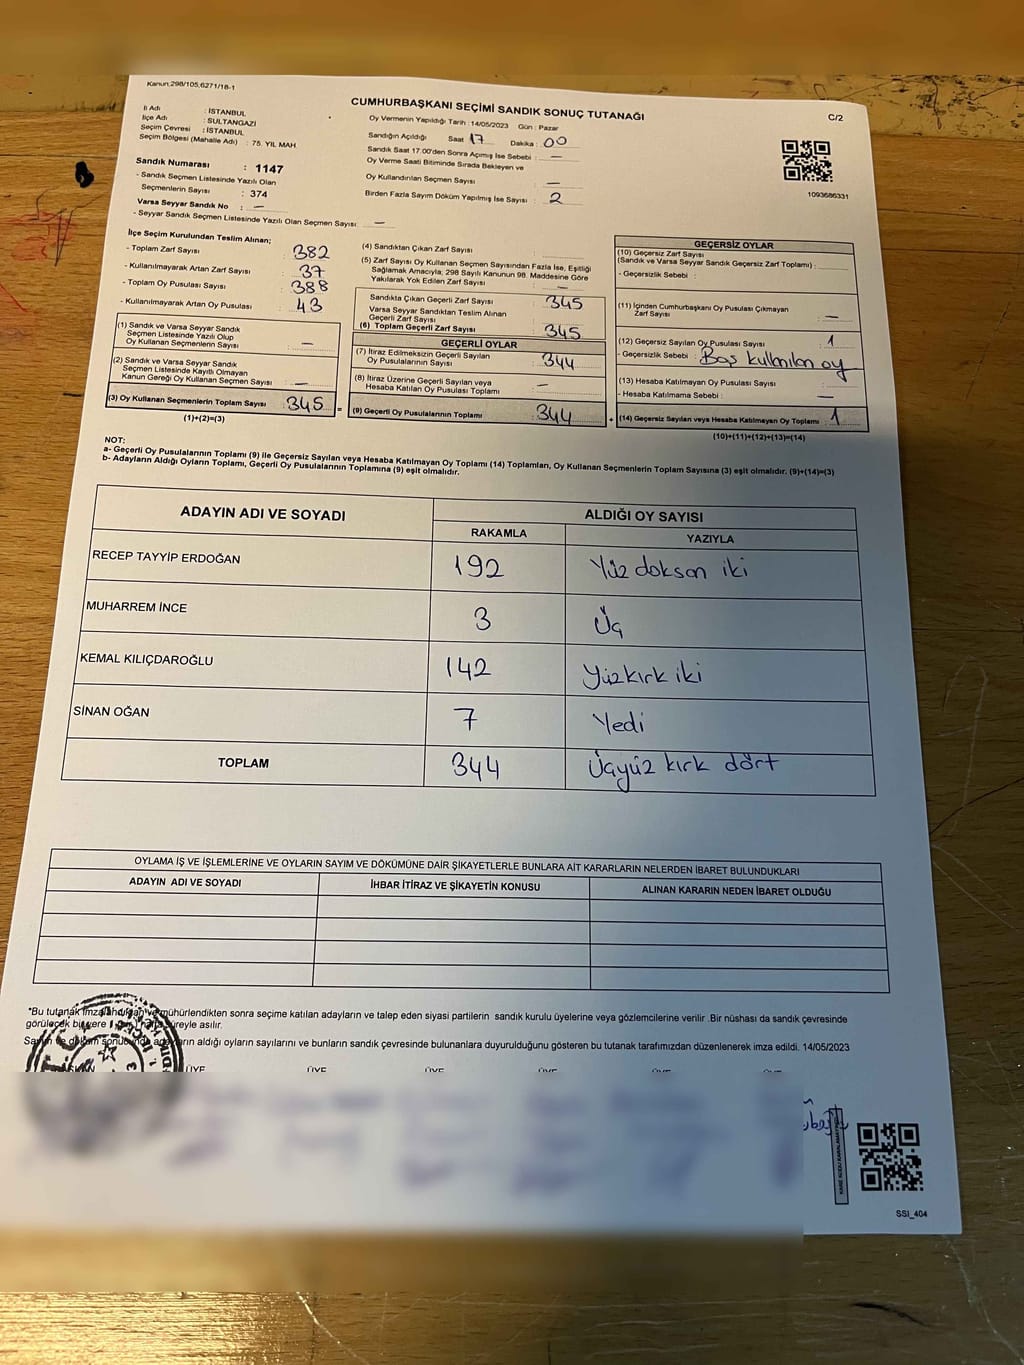 Kanun;298/105,6271/18-1
CUMHURBAŞKANI SEÇİMİ SANDIK SONUÇ TUTANAĞI
C/2
İli Adı : İSTANBUL
İlçe Adı : SULTANGAZİ
Seçim Çevresi : İSTANBUL
Seçim Bölgesi (Mahalle Adı) : 75. YIL MAH
Sandık Numarası : 1147
- Sandık Seçmen Listesinde Yazılı Olan
Seçmenlerin Sayısı : 374
Varsa Seyyar Sandık No : —
- Seyyar Sandık Seçmen Listesinde Yazılı Olan Seçmen Sayısı: —
Oy Vermenin Yapıldığı Tarih : 14/05/2023 Gün : Pazar
Sandığın Açıldığı Saat 17 Dakika : 00
Sandık Saat 17:00'den Sonra Açımış İse Sebebi : —
Oy Verme Saati Bitiminde Sırada Bekleyen ve
Oy Kullandırılan Seçmen Sayısı : —
Birden Fazla Sayım Döküm Yapılmış İse Sayısı : 2
1093686331
İlçe Seçim Kurulundan Teslim Alınan;
- Toplam Zarf Sayısı : 382
- Kullanılmayarak Artan Zarf Sayısı : 37
- Toplam Oy Pusulası Sayısı : 388
- Kullanılmayarak Artan Oy Pusulası : 43
(1) Sandık ve Varsa Seyyar Sandık
Seçmen Listesinde Yazılı Olup
Oy Kullanan Seçmenlerin Sayısı : —
(2) Sandık ve Varsa Seyyar Sandık
Seçmen Listesinde Kayıtlı Olmayan
Kanun Gereği Oy Kullanan Seçmen Sayısı : —
(3) Oy Kullanan Seçmenlerin Toplam Sayısı : 345 =
(1)+(2)=(3)
(4) Sandıktan Çıkan Zarf Sayısı :
(5) Zarf Sayısı Oy Kullanan Seçmen Sayısından Fazla İse, Eşitliği
Sağlamak Amacıyla; 298 Sayılı Kanunun 98. Maddesine Göre
Yakılarak Yok Edilen Zarf Sayısı : —
Sandıkta Çıkan Geçerli Zarf Sayısı : 345
Varsa Seyyar Sandıktan Teslim Alınan
Geçerli Zarf Sayısı :
(6) Toplam Geçerli Zarf Sayısı : 345
GEÇERLİ OYLAR
(7) İtiraz Edilmeksizin Geçerli Sayılan
Oy Pusulalarının Sayısı : 344
(8) İtiraz Üzerine Geçerli Sayılan veya
Hesaba Katılan Oy Pusulası Toplamı : —
(9) Geçerli Oy Pusulalarının Toplamı : 344 +
GEÇERSİZ OYLAR
(10) Geçersiz Zarf Sayısı
(Sandık ve Varsa Seyyar Sandık Geçersiz Zarf Toplamı) :
- Geçersizlik Sebebi :
(11) İçinden Cumhurbaşkanı Oy Pusulası Çıkmayan
Zarf Sayısı : —
(12) Geçersiz Sayılan Oy Pusulası Sayısı : 1
- Geçersizlik Sebebi : Boş kullanılan oy
(13) Hesaba Katılmayan Oy Pusulası Sayısı : —
- Hesaba Katılmama Sebebi : —
(14) Geçersiz Sayılan veya Hesaba Katılmayan Oy Toplamı : 1
(10)+(11)+(12)+(13)=(14)
NOT:
a- Geçerli Oy Pusulalarının Toplamı (9) ile Geçersiz Sayılan veya Hesaba Katılmayan Oy Toplamı (14) Toplamları, Oy Kullanan Seçmenlerin Toplam Sayısına (3) eşit olmalıdır. (9)+(14)=(3)
b- Adayların Aldığı Oyların Toplamı, Geçerli Oy Pusulalarının Toplamına (9) eşit olmalıdır.
ADAYIN ADI VE SOYADI ALDIĞI OY SAYISI
RAKAMLA YAZIYLA
RECEP TAYYİP ERDOĞAN 192 Yüz doksan iki
MUHARREM İNCE 3 Üç
KEMAL KILIÇDAROĞLU 142 Yüzkırk iki
SİNAN OĞAN 7 Yedi
TOPLAM 344 Üçyüz kırk dört
OYLAMA İŞ VE İŞLEMLERİNE VE OYLARIN SAYIM VE DÖKÜMÜNE DAİR ŞİKAYETLERLE BUNLARA AİT KARARLARIN NELERDEN İBARET BULUNDUKLARI
ADAYIN ADI VE SOYADI İHBAR İTİRAZ VE ŞİKAYETİN KONUSU ALINAN KARARIN NEDEN İBARET OLDUĞU
"Bu tutanak imzalandıktan ve mühürlendikten sonra seçime katılan adayların ve talep eden siyasi partilerin sandık kurulu üyelerine veya gözlemcilerine verilir .Bir nüshası da sandık çevresinde
görülecek bir yere süreyle asılır.
Sayım ve döküm sonucunda adayların aldığı oyların sayılarını ve bunların sandık çevresinde bulunanlara duyurulduğunu gösteren bu tutanak tarafımızdan düzenlenerek imza edildi. 14/05/2023
BAŞKAN ÜYE ÜYE ÜYE ÜYE ÜYE ÜYE
SSI_404